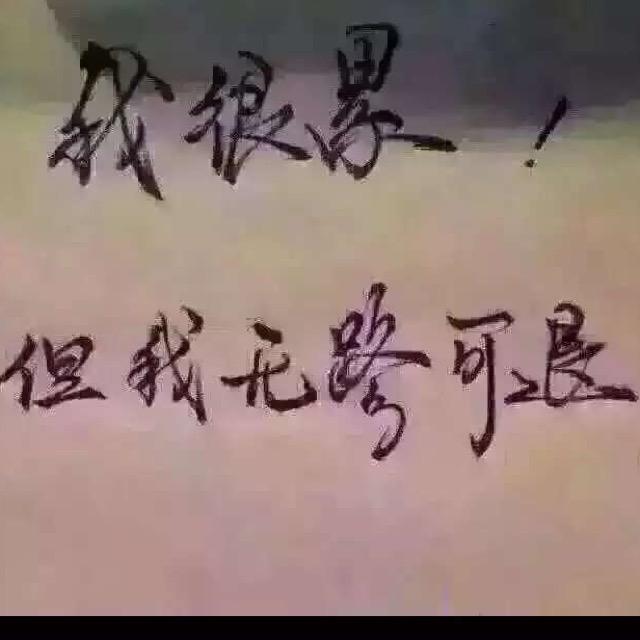 我很累!
但我无路可退